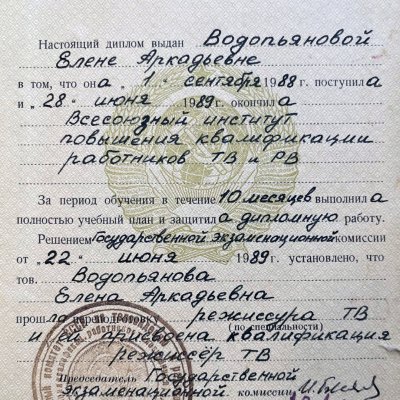 Настоящий диплом выдан Водопьяновой
Елене Аркадьевне
в том, что она „1“ сентября 1988 г. поступила
и „28“ июня 1989 г. окончила
Всесоюзный институт
повышения квалификации
работников ТВ и РВ
За период обучения в течение 10 месяцев выполнила
полностью учебный план и защитила дипломную работу.
Решением Государственной экзаменационной комиссии
от „22“ июня 1989 г. установлено, что
тов. Водопьянова
Елена Аркадьевна
прошла переподготовку режиссура ТВ
(по специальности)
и ей присвоена квалификация
режиссёр ТВ
Председатель Государственной
экзаменационной комиссии